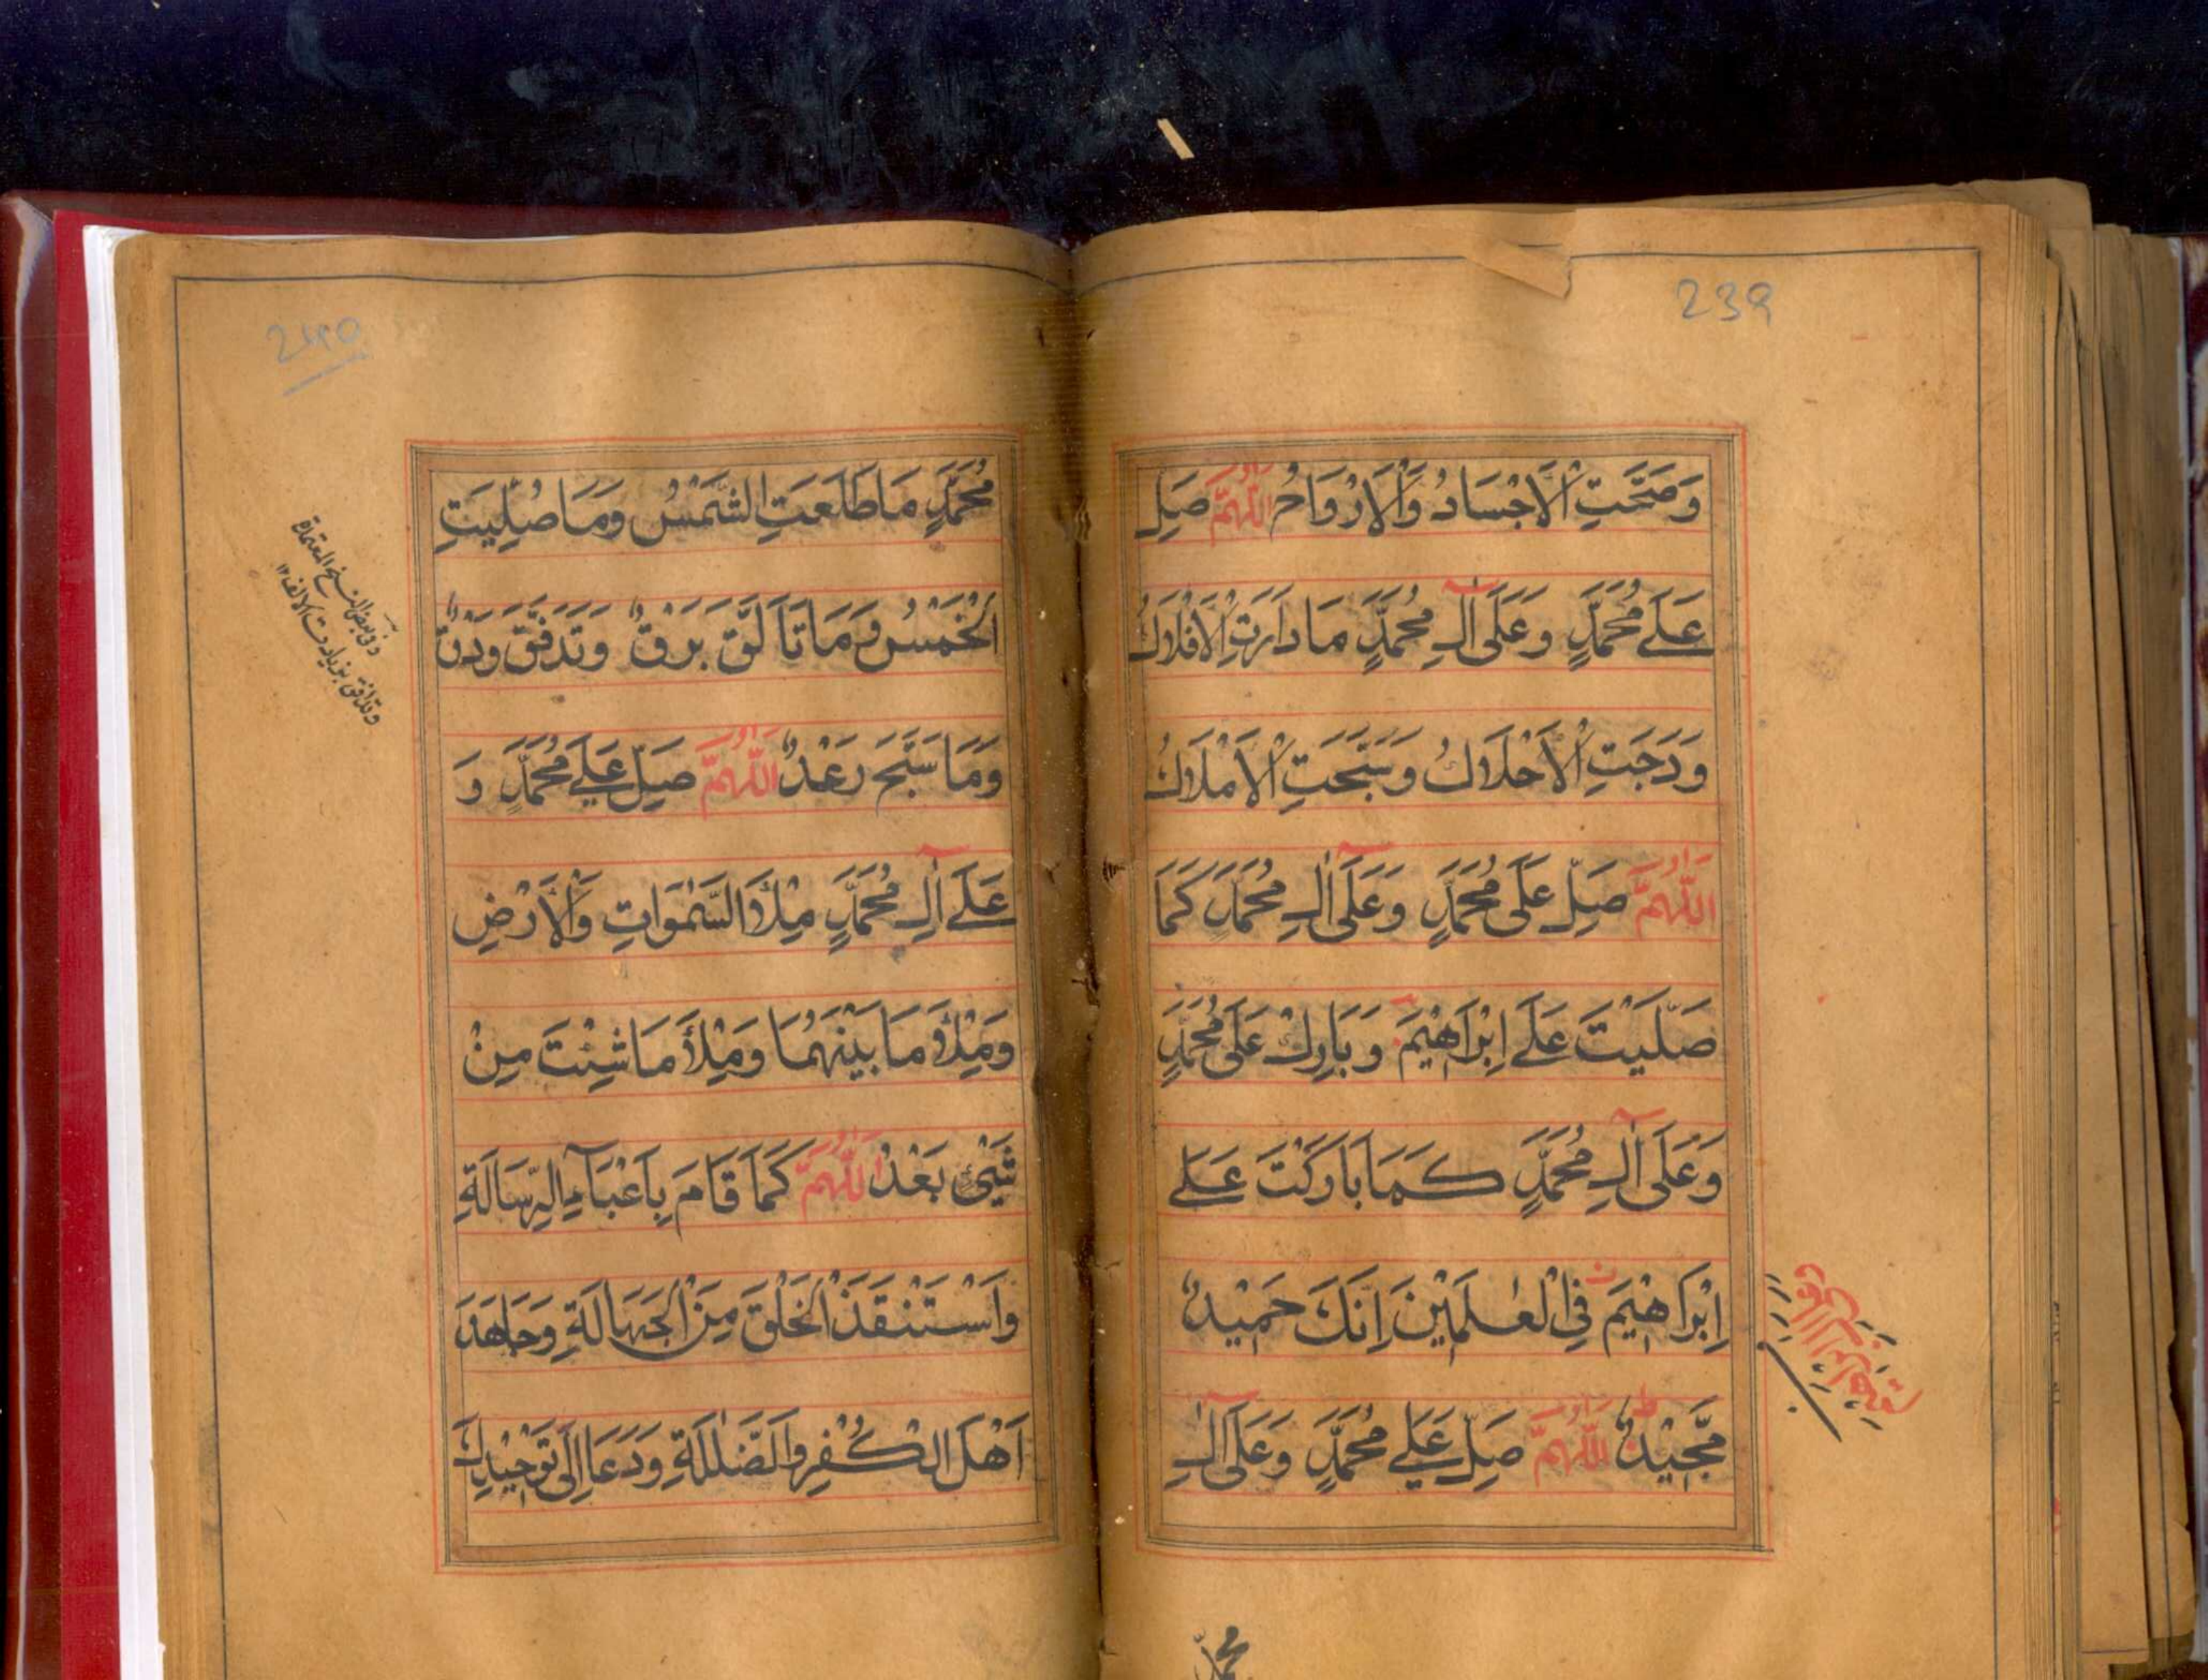 239
وَصَحَّتِ الْاَجْسَادُ وَالْاَرْوَاحُ اَللّٰهُمَّ صَلِّ
عَلٰے مُحَمَّدٍ وَعَلٰى اٰلِ مُحَمَّدٍ مَا دَارَتِ الْاَفْلَاكُ
وَدَجَتِ الْاَحْلَاكُ وَسَبَّحَتِ الْاَمْلَاكُ
اَللّٰهُمَّ صَلِّ عَلٰى مُحَمَّدٍ وَعَلٰى اٰلِ مُحَمَّدٍ كَمَا
صَلَّيْتَ عَلٰے اِبْرَاهِيْمَ وَبَارِكْ عَلٰى مُحَمَّدٍ
وَعَلٰى اٰلِ مُحَمَّدٍ كَمَا بَارَكْتَ عَلٰے
اِبْرَاهِيْمَ فِى الْعٰلَمِيْنَ اِنَّكَ حَمِيْدٌ
مَّجِيْدٌ اَللّٰهُمَّ صَلِّ عَلٰے مُحَمَّدٍ وَعَلٰى اٰلِ
محمد
240
مُحَمَّدٍ مَا طَلَعَتِ الشَّمْسُ وَمَا صُلِّيَتِ
الْخَمْسُ وَمَا تَاَلَّقَ بَرْقٌ وَتَدَفَّقَ وَدْقٌ
وَمَا سَبَّحَ رَعْدٌ اَللّٰهُمَّ صَلِّ عَلٰے مُحَمَّدٍ وَ
عَلٰے اٰلِ مُحَمَّدٍ مِلْأَ السَّمٰوَاتِ وَالْاَرْضِ
وَمِلْأَ مَا بَيْنَهُمَا وَمِلْأَ مَا شِئْتَ مِنْ
شَيْئٍ بَعْدُ اَللّٰهُمَّ كَمَا قَامَ بِاَعْبَآءِ الرِّسَالَةِ
وَاسْتَنْقَذَ الْخَلْقَ مِنَ الْجَهَالَةِ وَجَاهَدَ
اَهْلَ الْكُفْرِ وَالضَّلٰلَةِ وَدَعَا اِلٰى تَوْحِيْدِكَ
وفى بعض النسخ المعتمدة